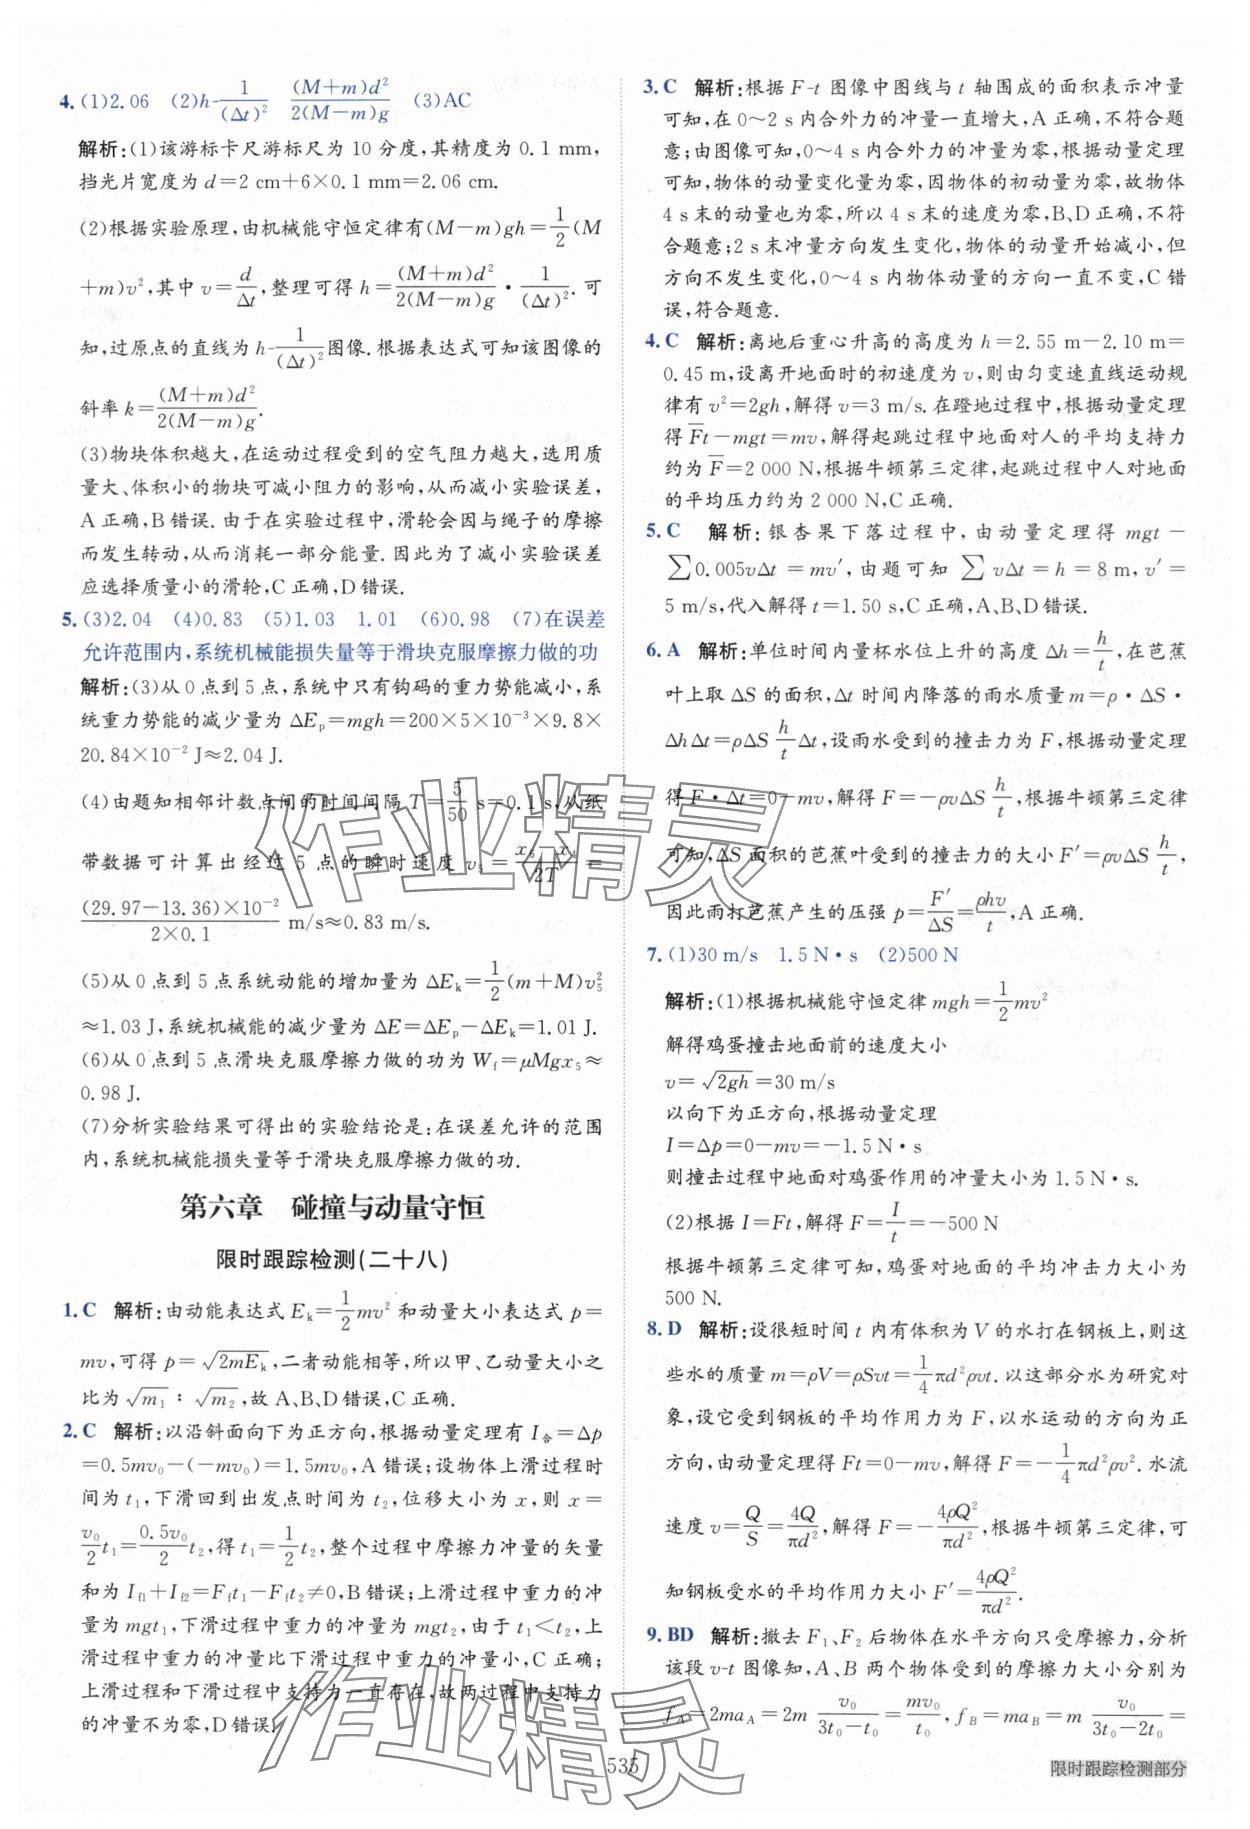 4. (1)2.06 (2)h-1/(Δt)² (M+m)d²/2(M-m)g (3)AC
解析:(1)该游标卡尺游标尺为 10 分度,其精度为 0.1 mm,
挡光片宽度为 d=2 cm+6×0.1 mm=2.06 cm.
(2)根据实验原理,由机械能守恒定律有(M-m)gh=1/2(M
+m)v²,其中 v=d/Δt,整理可得 h=(M+m)d²/2(M-m)g·1/(Δt)².可
知,过原点的直线为 h-1/(Δt)²图像.根据表达式可知该图像的
斜率 k=(M+m)d²/2(M-m)g.
(3)物块体积越大,在运动过程受到的空气阻力越大,选用质
量大、体积小的物块可减小阻力的影响,从而减小实验误差,
A 正确,B 错误.由于在实验过程中,滑轮会因与绳子的摩擦
而发生转动,从而消耗一部分能量.因此为了减小实验误差
应选择质量小的滑轮,C 正确,D 错误.
5. (3)2.04 (4)0.83 (5)1.03 1.01 (6)0.98 (7)在误差
允许范围内,系统机械能损失量等于滑块克服摩擦力做的功
解析:(3)从 0 点到 5 点,系统中只有钩码的重力势能减小,系
统重力势能的减少量为 ΔEp=mgh=200×5×10⁻³×9.8×
20.84×10⁻² J≈2.04 J.
(4)由题知相邻计数点间的时间间隔 T=5/50 s=0.1 s,从纸
带数据可计算出经过 5 点的瞬时速度 v₅=(x₆-x₄)/2T=
(29.97-13.36)×10⁻²/2×0.1 m/s≈0.83 m/s.
(5)从 0 点到 5 点系统动能的增加量为 ΔEk=1/2(m+M)v₅²
≈1.03 J,系统机械能的减少量为 ΔE=ΔEp-ΔEk=1.01 J.
(6)从 0 点到 5 点滑块克服摩擦力做的功为 Wf=μMgx₅≈
0.98 J.
(7)分析实验结果可得出的实验结论是:在误差允许的范围
内,系统机械能损失量等于滑块克服摩擦力做的功.
第六章 碰撞与动量守恒
限时跟踪检测(二十八)
1. C 解析:由动能表达式 Ek=1/2mv² 和动量大小表达式 p=
mv,可得 p=√2mEk,二者动能相等,所以甲、乙动量大小之
比为√m₁∶√m₂,故 A、B、D 错误,C 正确.
2. C 解析:以沿斜面向下为正方向,根据动量定理有 I合=Δp
=0.5mv₀-(-mv₀)=1.5mv₀,A 错误;设物体上滑过程时
间为 t₁,下滑回到出发点时间为 t₂,位移大小为 x,则 x=
v₀/2t₁=0.5v₀/2t₂,得 t₁=1/2t₂,整个过程中摩擦力冲量的矢量
和为 If1+If2=Fft₁-Fft₂≠0,B 错误;上滑过程中重力的冲
量为 mgt₁,下滑过程中重力的冲量为 mgt₂,由于 t₁<t₂,上
滑过程中重力的冲量比下滑过程中重力的冲量小,C 正确;
上滑过程和下滑过程中支持力一直存在,故两过程中支持力
的冲量不为零,D 错误.
3. C 解析:根据 F-t 图像中图线与 t 轴围成的面积表示冲量
可知,在 0～2 s内合外力的冲量一直增大,A 正确,不符合题
意;由图像可知,0～4 s内合外力的冲量为零,根据动量定理
可知,物体的动量变化量为零,因物体的初动量为零,故物体
4 s末的动量也为零,所以 4 s末的速度为零,B、D 正确,不符
合题意;2 s末冲量方向发生变化,物体的动量开始减小,但
方向不发生变化,0～4 s内物体动量的方向一直不变,C 错
误,符合题意.
4. C 解析:离地后重心升高的高度为 h=2.55 m-2.10 m=
0.45 m,设离开地面时的初速度为 v,则由匀变速直线运动规
律有 v²=2gh,解得 v=3 m/s.在蹬地过程中,根据动量定理
得F̅t-mgt=mv,解得起跳过程中地面对人的平均支持力
约为 F̅=2 000 N,根据牛顿第三定律,起跳过程中人对地面
的平均压力约为 2 000 N,C 正确.
5. C 解析:银杏果下落过程中,由动量定理得 mgt-
∑0.005vΔt=mv′,由题可知 ∑vΔt=h=8 m,v′=
5 m/s,代入解得 t=1.50 s,C 正确,A、B、D 错误.
6. A 解析:单位时间内量杯水位上升的高度 Δh=h/t,在芭蕉
叶上取 ΔS 的面积,Δt 时间内降落的雨水质量 m=ρ·ΔS·
ΔhΔt=ρΔS h/tΔt,设雨水受到的撞击力为 F,根据动量定理
得 F·Δt=0-mv,解得 F=-ρvΔS h/t,根据牛顿第三定律
可知,ΔS 面积的芭蕉叶受到的撞击力的大小 F′=ρvΔS h/t,
因此雨打芭蕉产生的压强 p=F′/ΔS=ρhv/t,A 正确.
7. (1)30 m/s 1.5 N·s (2)500 N
解析:(1)根据机械能守恒定律 mgh=1/2mv²
解得鸡蛋撞击地面前的速度大小
v=√2gh=30 m/s
以向下为正方向,根据动量定理
I=Δp=0-mv=-1.5 N·s
则撞击过程中地面对鸡蛋作用的冲量大小为 1.5 N·s.
(2)根据 I=Ft,解得 F=I/t=-500 N
根据牛顿第三定律可知,鸡蛋对地面的平均冲击力大小为
500 N.
8. D 解析:设很短时间 t 内有体积为 V 的水打在钢板上,则这
些水的质量 m=ρV=ρSvt=1/4πd²ρvt.以这部分水为研究对
象,设它受到钢板的平均作用力为 F,以水运动的方向为正
方向,由动量定理得 Ft=0-mv,解得 F=-1/4πd²ρv².水流
速度 v=Q/S=4Q/πd²,解得 F=-4ρQ²/πd²,根据牛顿第三定律,可
知钢板受水的平均作用力大小 F′=4ρQ²/πd².
9. BD 解析:撤去 F₁、F₂ 后物体在水平方向只受摩擦力,分析
该段 v-t 图像知,A、B 两个物体受到的摩擦力大小分别为
fA=2maA=2m v₀/(3t₀-t₀)=mv₀/t₀,fB=maB=m v₀/(3t₀-2t₀)=
作业精灵
作业精灵
535
限时跟踪检测部分